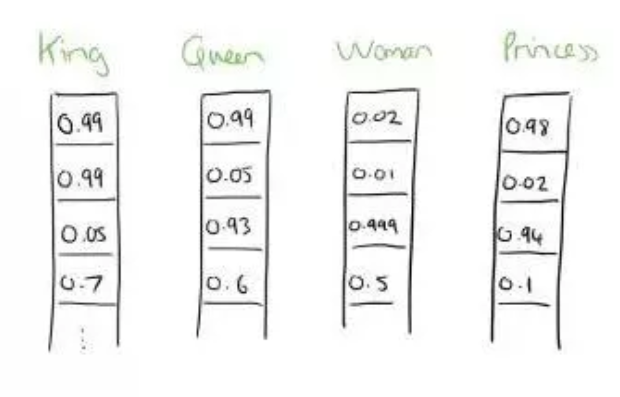 King Queen Woman Princess
0.99 0.99 0.02 0.98
0.99 0.05 0.01 0.02
0.05 0.93 0.999 0.94
0.7 0.6 0.5 0.1
⋮